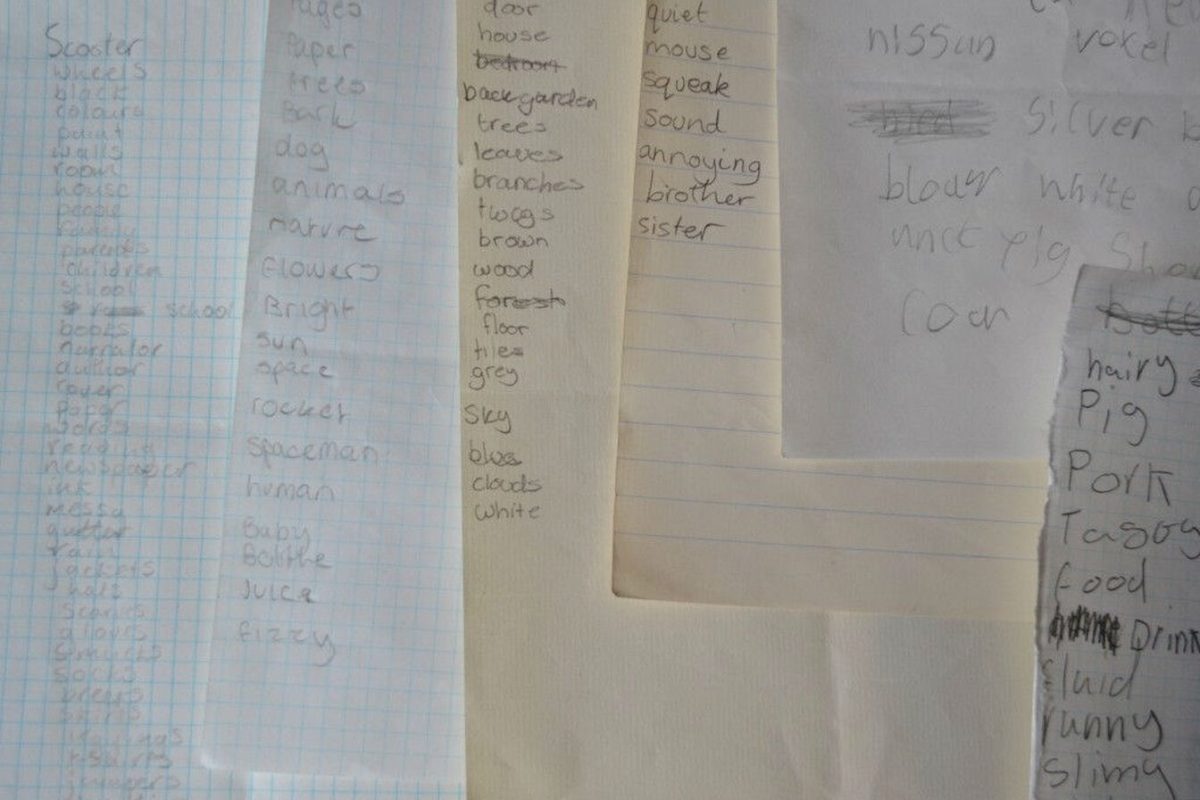 Scooter
wheels
black
colours
paint
walls
room
house
people
family
parents
children
school
school
books
narrator
author
cover
paper
words
reading
newspaper
ink
messy
gutter
rain
jackets
hats
scarfs
socks
skirts
jumpers
Paper
trees
Bark
dog
animals
nature
Flowers
Bright
Sun
space
rocket
Spaceman
human
Baby
Juice
fizzy
door
house
backgarden
trees
leaves
branches
twogs
brown
wood
forest
floor
tiles
grey
Sky
clouds
white
quiet
mouse
squeak
sound
annoying
brother
sister
nissun voxel
Silver
white
pig
hairy
Pig
Pork
food
Drink
fluid
runny
slimy